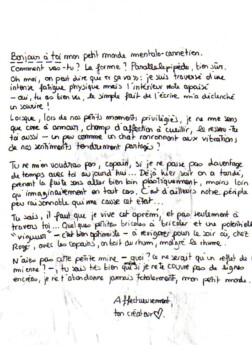 Bonjour à toi mon petit monde mentalo-carnetien.
Comment vas-tu? La forme? Parallélépipède, bien sûr.
Oh moi, on peut dire que ça va : je suis traversé d'une
intense fatigue physique mais l'intérieur reste apaisé
- oui, tu as bien vu, le simple fait de l'écrire m'a déclenché
un sourire!
Lorsque, lors de nos petits moments privilégiés, je ne me sens
que came à amour, champ d'affection à cueillir, le ressens-tu
toi aussi - un peu comme un chat ronronnant aux vibrations
de nos sentiments tendrement partagés?
Tu ne m'en voudras pas, copain, si je ne passe pas davantage
de temps avec toi aujourd'hui... Déjà hier soir on a tardé,
prenant la fuite sans aller bien loin, moins loin
qu'imaginativement en tout cas. C'est d'ailleurs notre périple
peu raisonnable qui me cause cet état...
Tu sais, il faut que je vive cet aprèm, et pas seulement à
travers toi... Quelques petites bricoles à bricoler et une potentielle
"vigueur" - c'est bien optimiste - à revigorer pour le soir où, chez
Roge, avec les copains, on boit du rhum, malgré le rhume...
N'aie pas cette petite mine - quoi? Ce ne serait qu'un reflet de la
mienne? -, tu sais très bien que si je ne te couvre pas de signes
encrés, je ne t'abandonne jamais totalement, mon petit monde.
Affectueusement,
ton créateur♡.